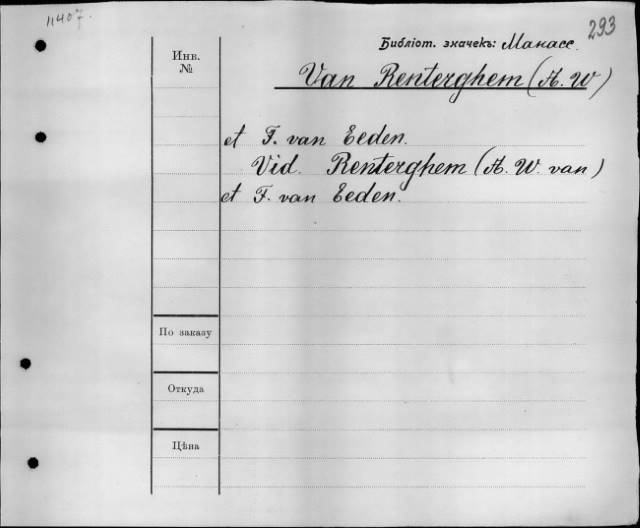 11407.
293
Библіот. значекъ: Манасе.
Инв.
№
Van Renterghem (A. W)
et F. van Eeden.
Vid. Renterghem (A. W. van)
et F. van Eeden.
По заказу
Откуда
Цѣна